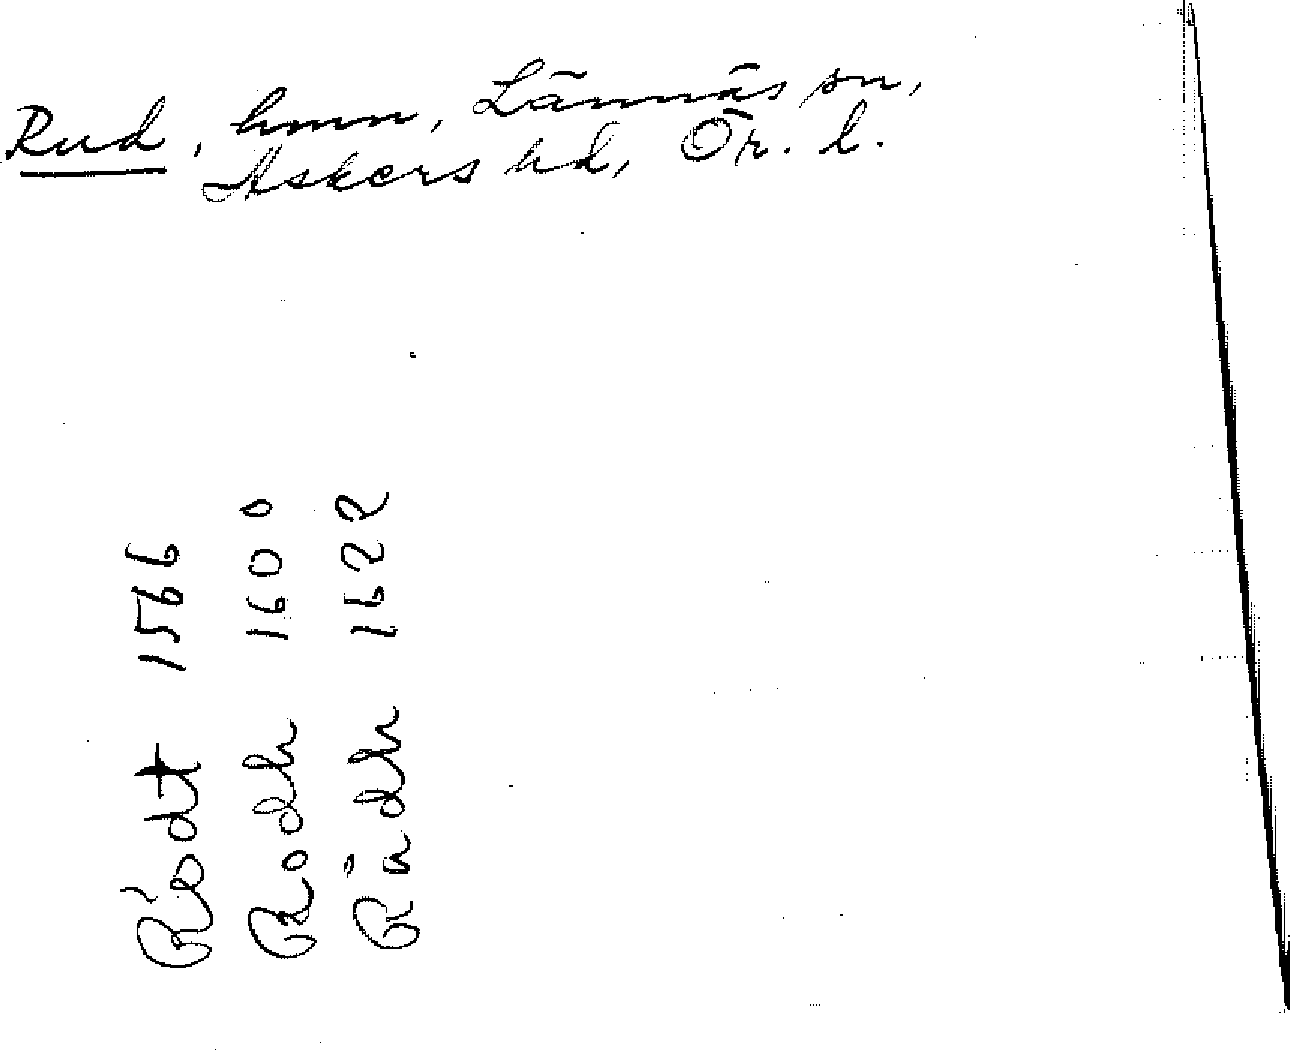 Rud, hmn, Lännäs sn,
Askers hd, Ör. l.
Rödt 1566
Rodh 1600
Rudh 1622